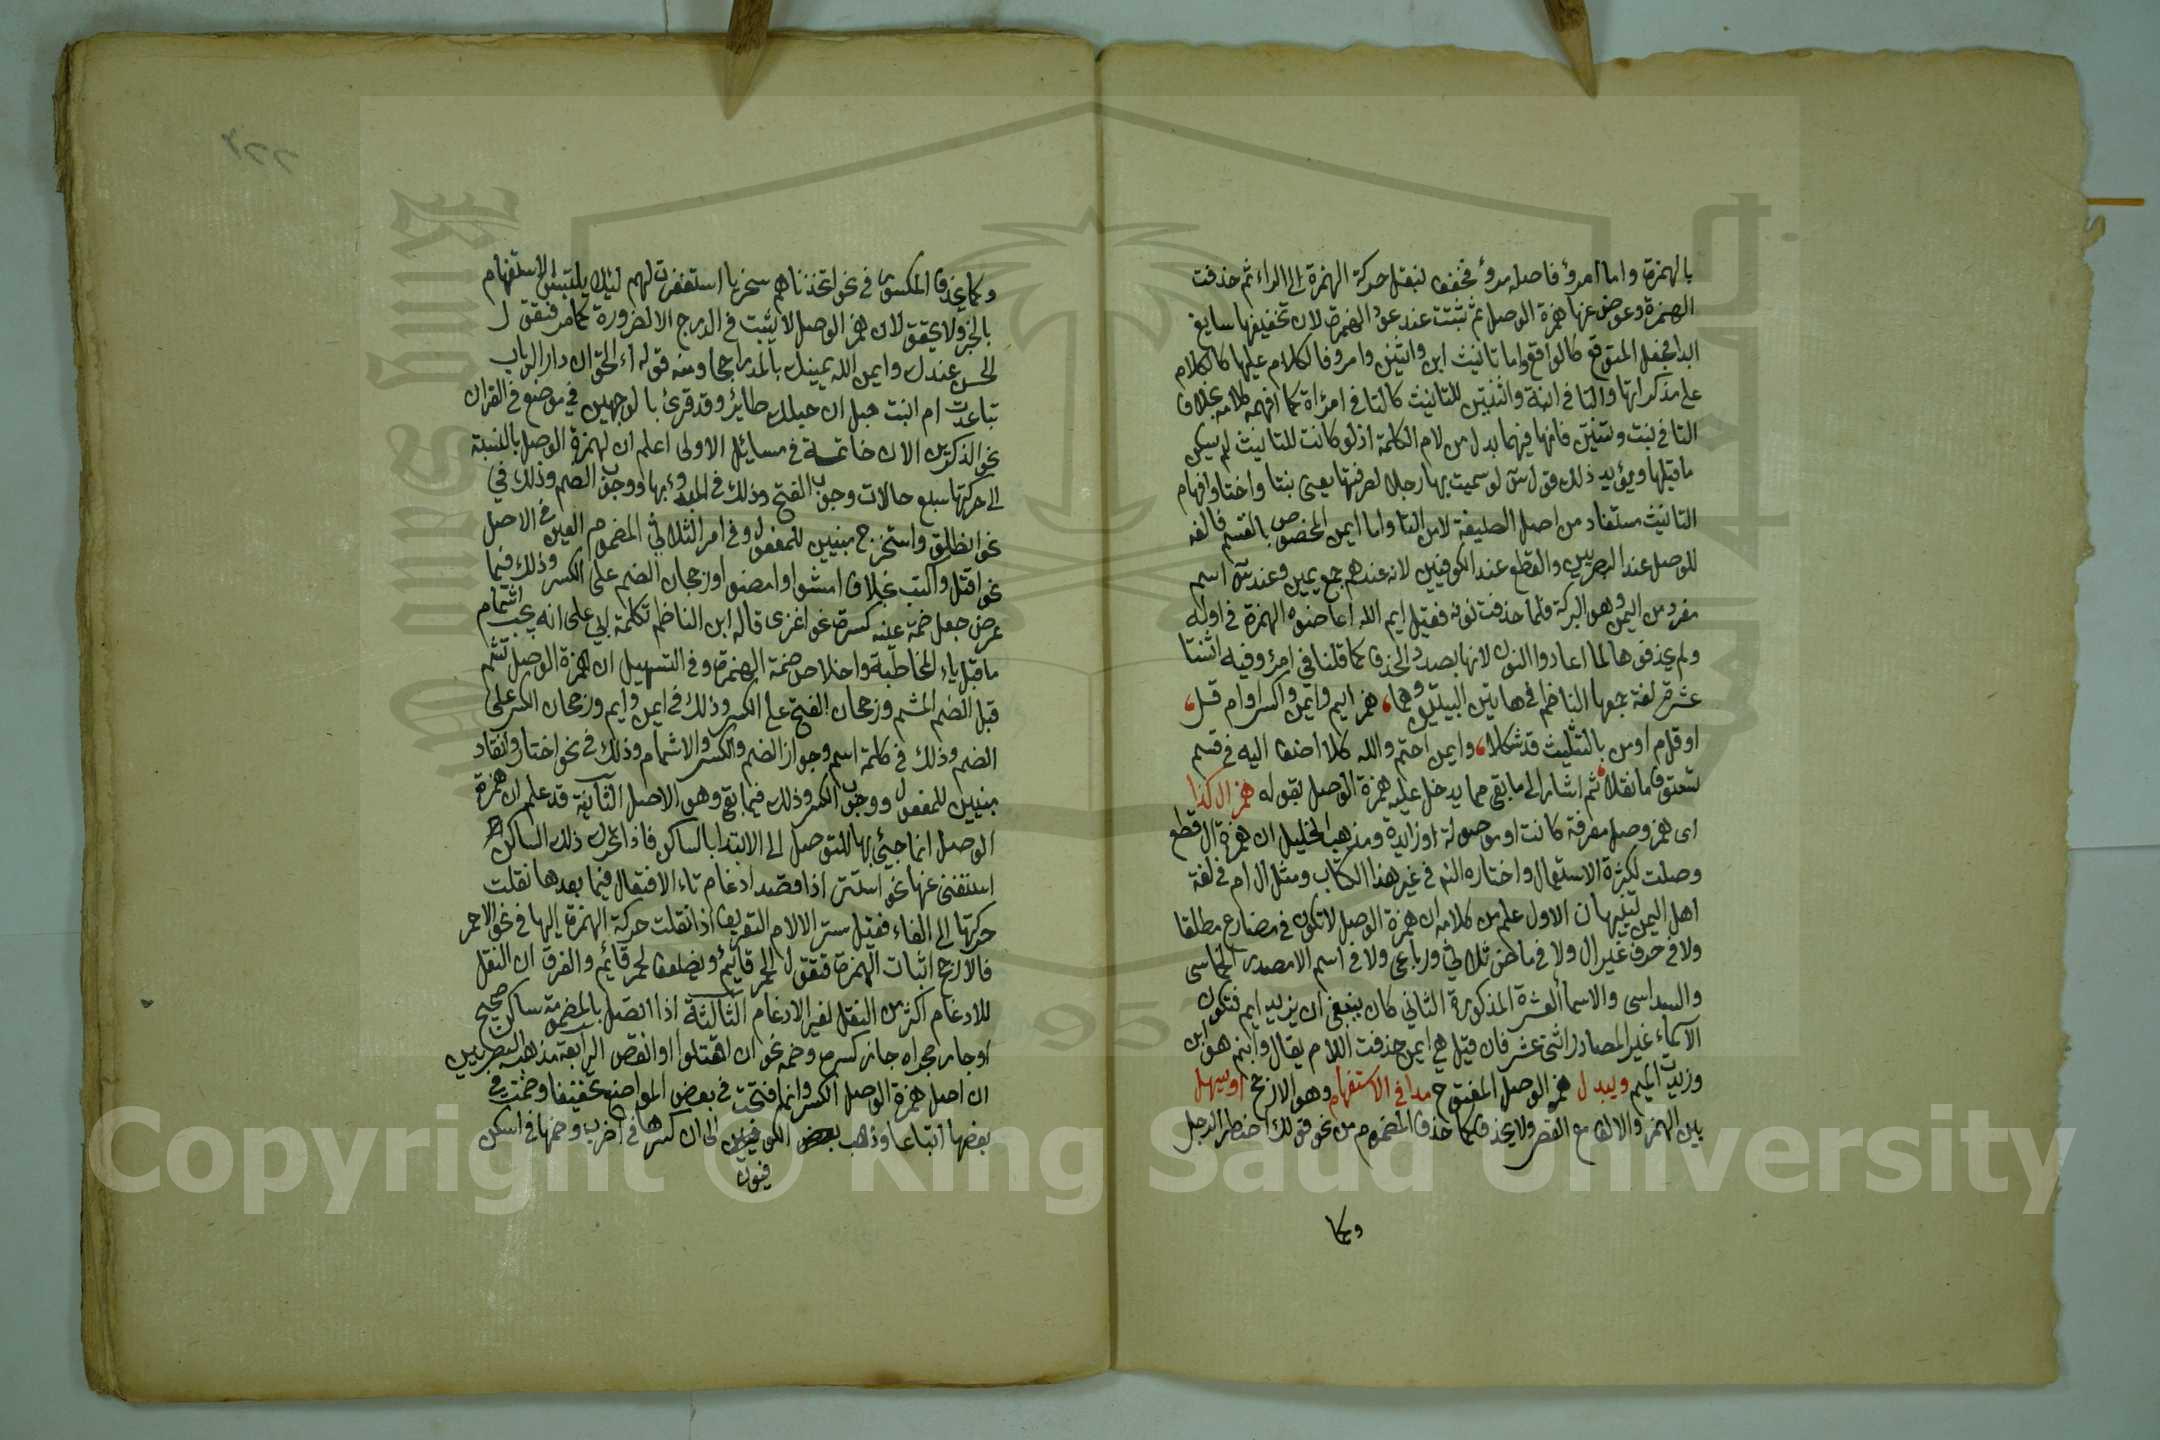 بالهمزة واما امرؤ فاصله مرؤ فخفف لنبقل حركة الهمزة الى الراء ثم حذفت
الهمزة وعوض عنها همزة الوصل ثم ثبتت عند عود الهمزة لان تخفيفها سايغ
ابدا فجعل المتوقع كالواقع واما تانيث ابن واثنين وامرؤ فالكلام عليها كالكلام
على مذكراتها والتا في ابنة واثنتين للتانيث كالتا في امراة كما افهمه كلامه بخلاف
التا في بنت وثنتين فانها فيهما بدل من لام الكلمة اذ لو كانت للتانيث لم يسكن
ما قبلها ويؤيد ذلك قول س لو سميت بها رجلا لصرفتها يعنى بنتا واختا وافهام
التانيث مستفاد من اصل الصليغة لا من التا واما ايمن المخصوص بالقسم فالفه
للوصل عند البصريين والقطع عند الكوفيين لانه عندهم جمع يمين وعند س اسم
مفرد من اليمن وهو البركة فلما حذفت نونه فقيل ايم الله اعاضوه الهمزة في اوله
ولم يحذفوها لما اعادوا النون لانها بصدد الحذف كما قلنا في امرؤ وفيه اثنتا
عشرة لغة جمعها الناظم في هاتين البيتين وهما، همز ايم وايمن واكسر او ام قل،
او قل م او من بالتثليث قد شكلا، وايمن اختم والله كلا اضف اليه في قسم
تستوف ما نقلا، ثم اشار الى ما بقى مما يدخل عليه همزة الوصل بقوله همز ال كذا
اى همز وصل معرفة كانت او موصولة او زايدة ومذهب الخليل ان همزة ال قطع
وصلت لكثرة الاستعمال واختاره النم في غير هذا الكتاب ومثل ال ام في لغة
اهل اليمن تنبيهان الاول علم من كلامه ان همزة الوصل لا تكون في مضارع مطلقا
ولا في حرف غير ال ولا في ماض ثلاثي ورباعى ولا في اسم الا مصدر الخماسى
والسداسى والاسما العشرة المذكورة الثاني كان ينبغى ان يزيد ايم فتكون
الاسماء غير المصادر اثنى عشر فان قيل هي ايمن حذفت اللام يقال وابنم هو ابن
وزيدت الميم ويبدل همز الوصل المفتوح مدا في الاستفهام وهو الارجح او يسهل
بين الهمز والالف مع القصر ولا يحذف كما حذف المضموم من نحو قولك اضطر الرجل
وكما
وكما يحذف المكسور في نحو اتخذناهم سخريا استغفرت لهم لئلا يلتبس الاستفهام
بالخبر ولا يحقق لان همز الوصل لا يثبت في الدرج الا لضرورة كما مر فتقول
الحسن عندك وايمن الله يمينك بالمد راجحا ومنه قوله اء الحق ان دار الرباب
تباعدت ام انبت حبل ان حبلك طائر وقد قرئ بالوجهين في موضع في القران
نحو الذكرين الان خاتمة في مسائل الاولى اعلم ان لهمزة الوصل بالنسبة
الى حركتها سبع حالات وجوب الفتح وذلك في المبدوء بها ووجوب الضم وذلك في
نحو انطلق واستخرج مبنيين للمفعول وفي امر الثلاثي المضموم العين في الاصل
نحو اقتل واكتب بخلاف امشوا وامضوا ورجحان الضم على الكسر وذلك فيما
عرض جعل ضمة عينه كسرة نحو اغزى قاله ابن الناظم تكلمة ابي على انه يجب اشمام
ما قبل ياء المخاطبة واخلاص ضمة الهمزة وفي التسهيل ان همزة الوصل تشم
قبل الضم المشم ورجحان الفتح على الكسر وذلك في ايمن وايم ورجحان الكسر على
الضم وذلك في كلمة اسم وجواز الضم والكسر والاشمام وذلك في نحو اختار وانقاد
مبنيين للمفعول ووجوب الكسر وذلك فيما بقى وهو الاصل الثانية قد علم ان همزة
الوصل انما جيئ بها للتوصل الى الابتدا بالساكن فاذا تحرك ذلك الساكن
استغنى عنها نحو استتر اذا قصد ادغام تاء الافتعال فيما بعدها نقلت
حركتها الى الفاء فقيل ستر الا لام التعريف اذا نقلت حركة الهمزة اليها في نحو الاحمر
فالارجح اثبات الهمزة فتقول الحمر قايم ويضعف لحمر قائم والفرق ان النقل
للادغام اكثر من النقل لغير الادغام الثالثة اذا اتصل بالمضمومة ساكن صحيح
او جار مجراه جاز كسره وضمه نحو ان اقتلوا او انقص الرابعة مذهب البصريين
ان اصل همزة الوصل الكسر وانما فتحت في بعض المواضع تخفيفا وضمت في
بعضها اتباعا وذهب بعض الكوفيين الى ان كسرها في اضرب وضمها في اسكن
فيون
Copyright © King Saud University
King Saud University
1957